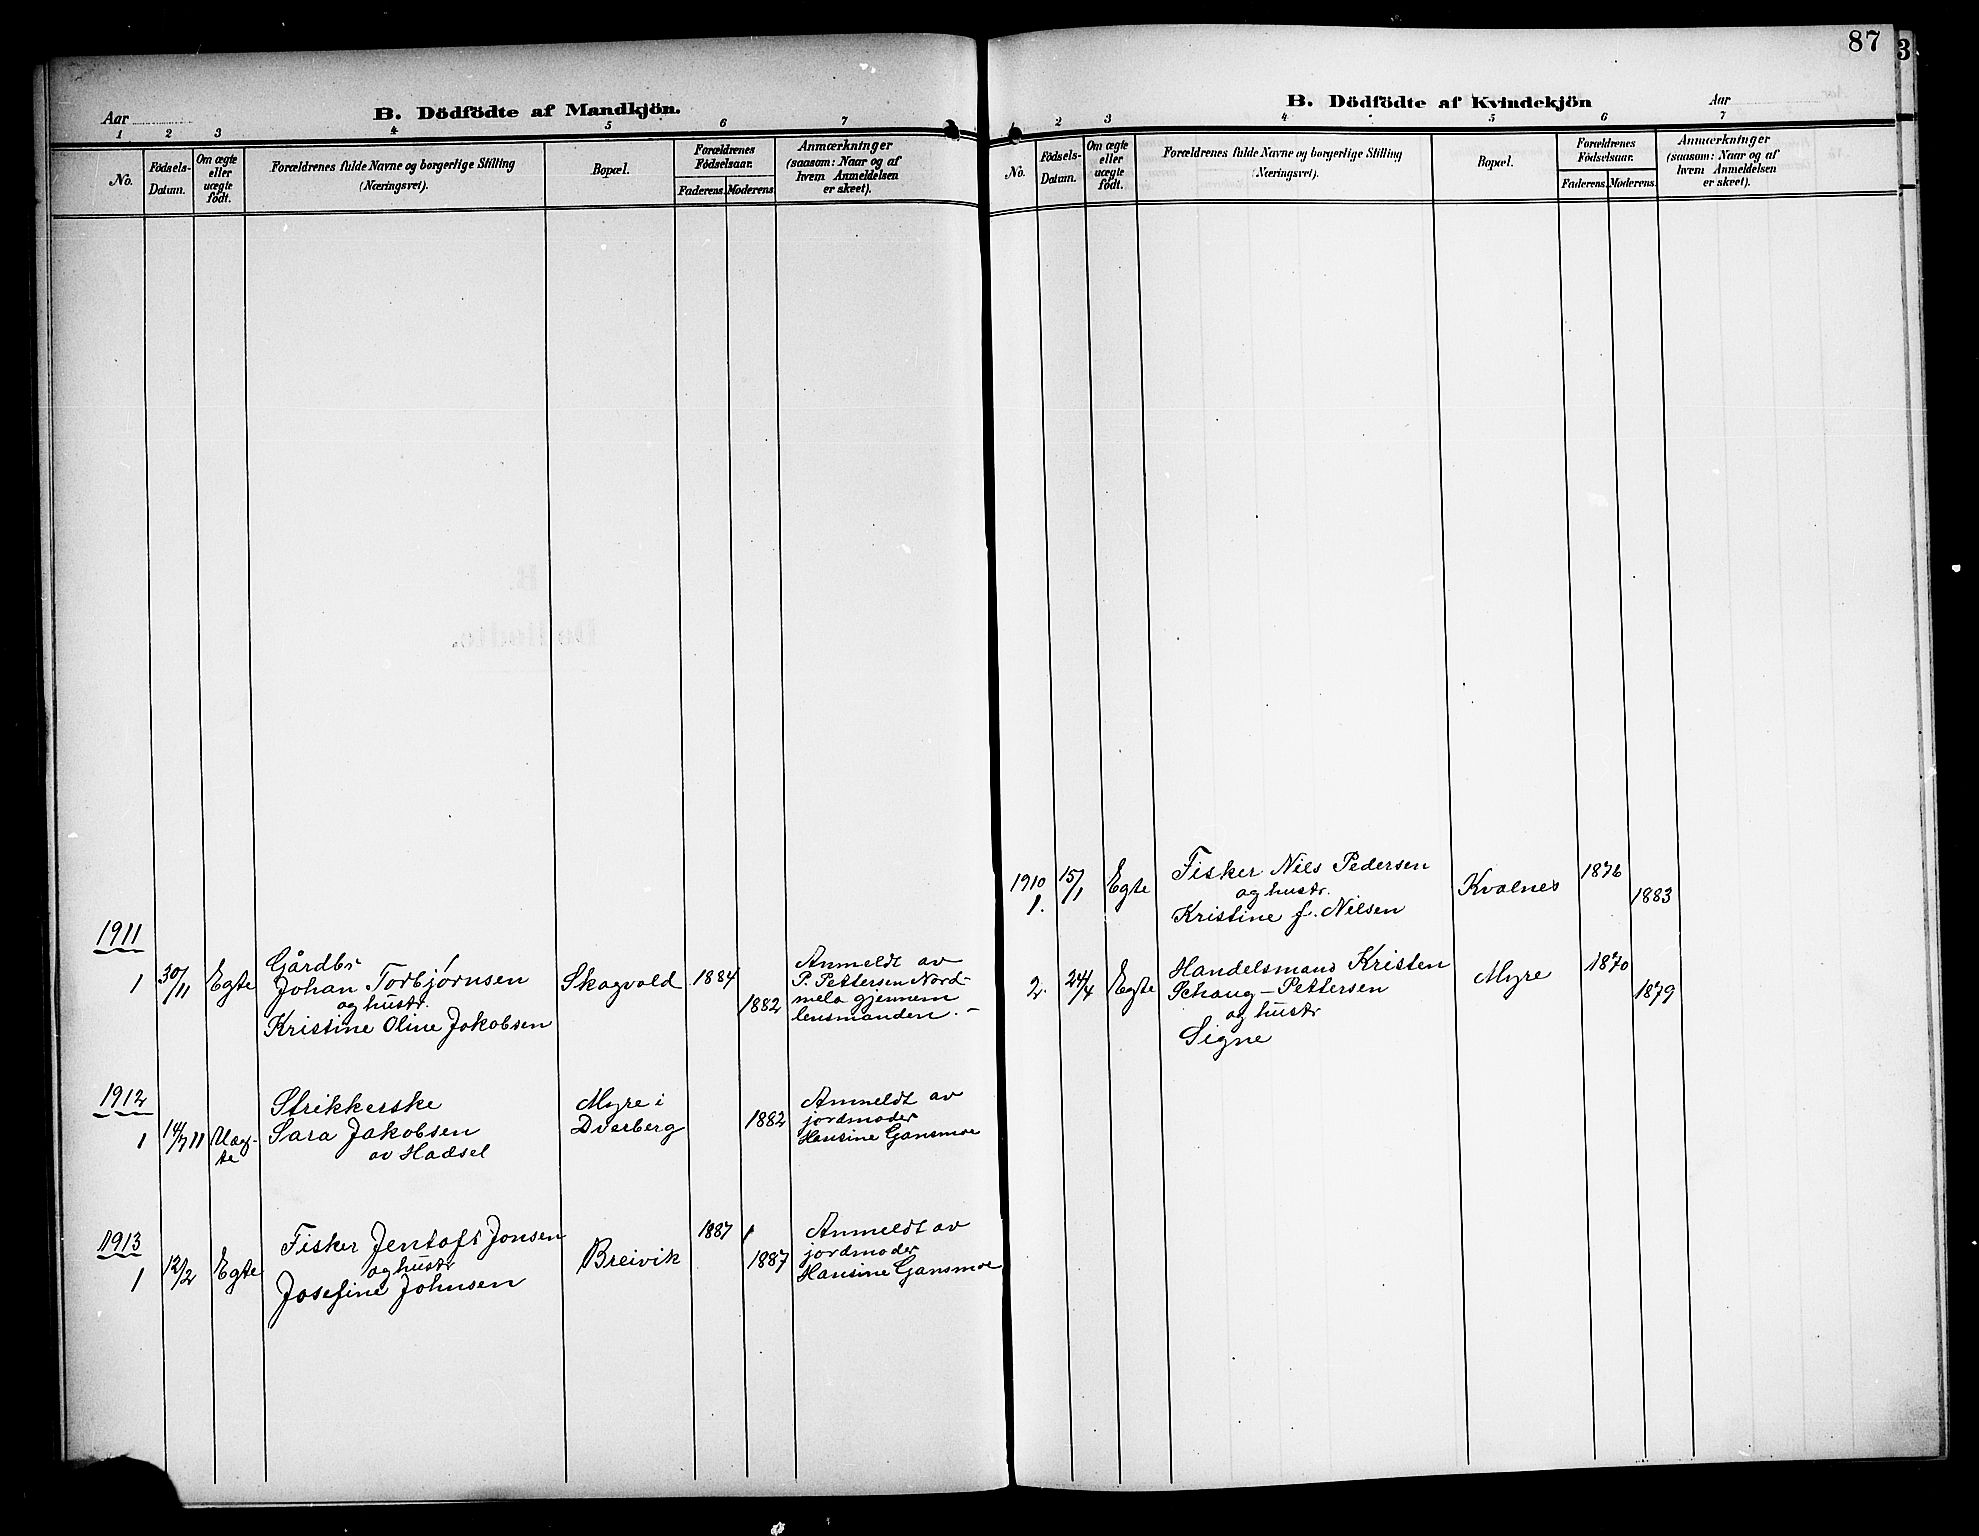 Aar
B. Dödfödte af Mandkjön.
1 2 3 4 5 6 7
No.
Födsels-
Datum.
Om ægte
eller
uægte
födt.
Forældrenes fulde Navne og borgerlige Stilling
(Næringsvei).
Bopæl.
Forældrenes
Födselsaar.
Faderens. Moderens.
Anmærkninger
(saasom: Naar og af
hvem Anmeldelsen
er skeet).
1911
1 30/11 Egte
Gårdbr
Johan Torbjørnsen
og hustr.
Kristine Oline Jakobsen
Skogvold
1884
1882
Anmeldt av
P. Pettersen Nord-
mela gjennem
lensmanden. –
1912
1 14/7 11 Uæg-
te
Strikkerske
Sara Jakobsen
av Hadsel
Myre i
Dverberg
1882
Anmeldt av
jordmoder
Hansine Gansmoe
1913
1 12/2 Egte
Fisker Jentoft Jonsen
og hustr
Josefine Johnsen
Breivik
1887
1887
Anmeldt av
jordmoder
Hansine Gansmoe
87
3
B. Dödfödte af Kvindekjön
Aar
1 2 3 4 5 6 7
No.
Födsels-
Datum.
Om ægte
eller
uægte
födt.
Forældrenes fulde Navne og borgerlige Stilling
(Næringsvei).
Bopæl.
Forældrenes
Födselsaar.
Faderens. Moderens.
Anmærkninger
(saasom: Naar og af
hvem Anmeldelsen
er skeet).
1910
1. 15/1 Egte
Fisker Nils Pedersen
og hustr.
Kristine f. Nilsen
Kvalnes
1876
1883
2. 24/4 Egte
Handelsmand Kristen
Schaug-Pettersen
og hustr
Signe
Myre
1870
1879